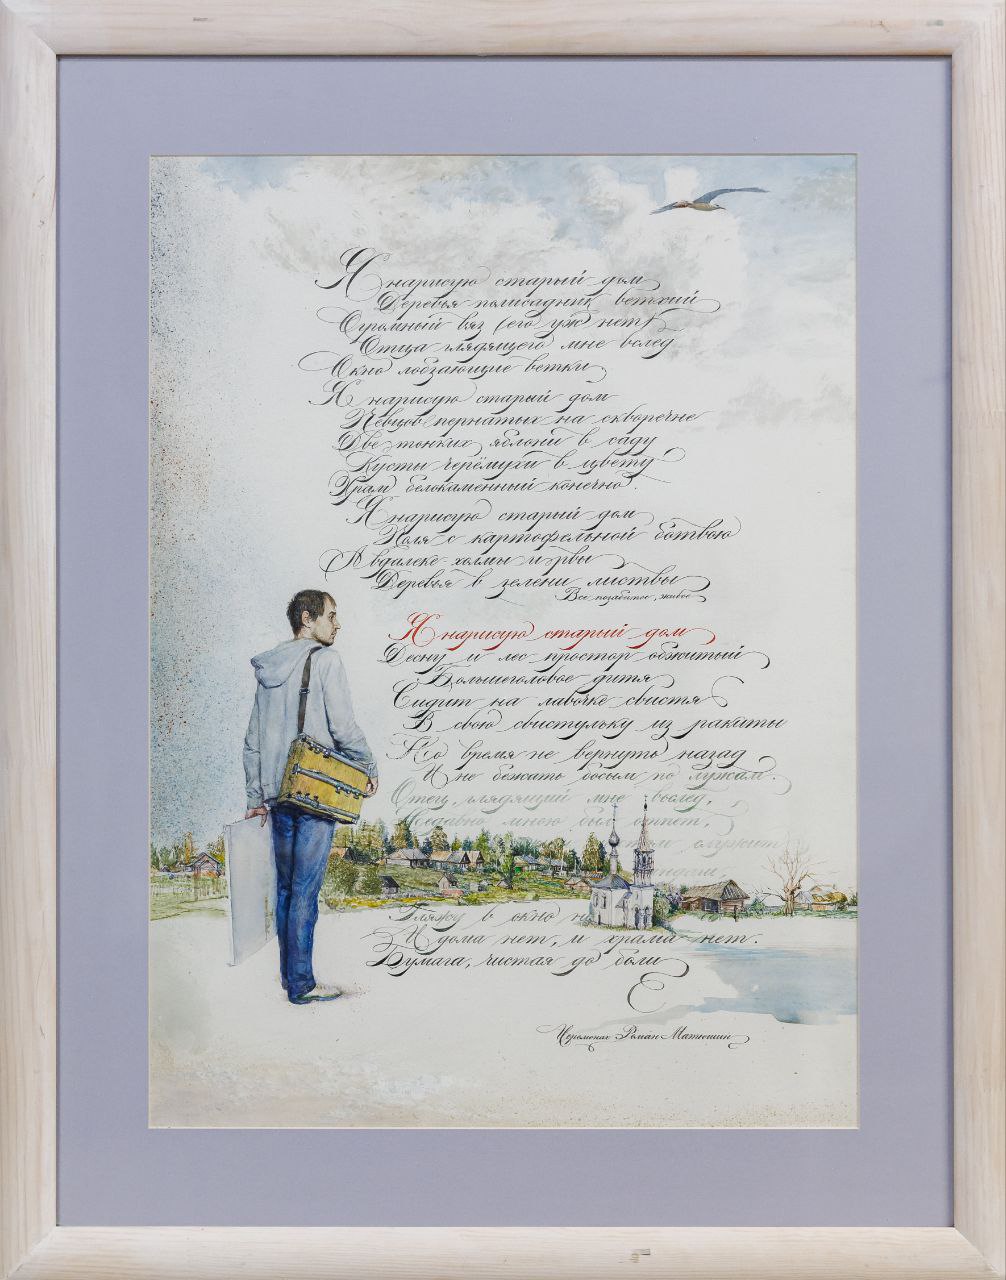 Я нарисую старый дом
Деревья полисадник ветхий
Огромный вяз (его уж нет)
Отца глядящего мне вслед
Окно лобзающие ветки
Я нарисую старый дом
Певцов пернатых на скворечне
Две тонких яблони в саду
Кусты черёмухи в цвету
Храм белокаменный конечно.
Я нарисую старый дом
Поля с картофельной ботвою
А вдалеке холмы и рвы
Деревья в зелени листвы
Все позабытое, живое
Я нарисую старый дом
Десну и лес простор обжитый
Большеголовое дитя
Сидит на лавочке свистя
В свою свистульку из ракиты
Но время не вернуть назад
И не бежать босым по лужам.
Отец, глядящий мне вослед,
Недавно мною был отпет,
служит
Гляжу в окно
И дома нет, и храма нет.
Бумага, чистая до боли
Иеромонах Роман Матюшин